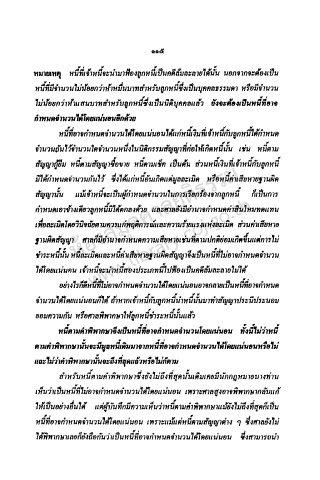 ๑๑๕
หมายเหตุ หนี้ที่เจ้าหนี้จะนำมาฟ้องลูกหนี้เป็นคดีล้มละลายได้นั้น นอกจากจะต้องเป็น
หนี้ที่มีจำนวนไม่น้อยกว่าห้าหมื่นบาทสำหรับลูกหนี้ซึ่งเป็นบุคคลธรรมดา หรือมีจำนวน
ไม่น้อยกว่าห้าแสนบาทสำหรับลูกหนี้ซึ่งเป็นนิติบุคคลแล้ว ยังจะต้องเป็นหนี้ที่อาจ
กำหนดจำนวนได้โดยแน่นอนอีกด้วย
หนี้ที่อาจกำหนดจำนวนได้โดยแน่นอนได้แก่หนี้เงินที่เจ้าหนี้กับลูกหนี้ได้กำหนด
จำนวนกันไว้จำนวนใดจำนวนหนึ่งในนิติกรรมสัญญาที่ก่อให้เกิดหนี้นั้น เช่น หนี้ตาม
สัญญากู้ยืม หนี้ตามสัญญาซื้อขาย หนี้ตามเช็ค เป็นต้น ส่วนหนี้เงินที่เจ้าหนี้กับลูกหนี้
มิได้กำหนดจำนวนกันไว้ ซึ่งได้แก่หนี้อันเกิดแต่มูลละเมิด หรือหนี้ค่าเสียหายฐานผิด
สัญญานั้น แม้เจ้าหนี้จะเป็นผู้กำหนดจำนวนในการเรียกร้องจากลูกหนี้ ก็เป็นการ
กำหนดเอาข้างเดียวลูกหนี้มิได้ตกลงด้วย และศาลยังมีอำนาจกำหนดค่าสินไหมทดแทน
เพื่อละเมิดโดยวินิจฉัยตามความพฤติการณ์และความร้ายแรงแห่งละเมิด ส่วนค่าเสียหาย
ฐานผิดสัญญา ศาลก็มีอำนาจกำหนดความเสียหายเช่นที่ตามปกติย่อมเกิดขึ้นแต่การไม่
ชำระหนี้นั้น หนี้ละเมิดและหนี้ค่าเสียหายฐานผิดสัญญาจึงเป็นหนี้ที่ไม่อาจกำหนดจำนวน
ได้โดยแน่นอน เจ้าหนี้จะนำหนี้สองประเภทนี้ไปฟ้องเป็นคดีล้มละลายไม่ได้
อย่างไรก็ดีหนี้ที่ไม่อาจกำหนดจำนวนได้โดยแน่นอนอาจกลายเป็นหนี้ที่อาจกำหนด
จำนวนได้โดยแน่นอนก็ได้ ถ้าหากเจ้าหนี้กับลูกหนี้นำหนี้นั้นมาทำสัญญาประนีประนอม
ยอมความกัน หรือศาลพิพากษาให้ลูกหนี้ชำระหนี้นั้นแล้ว
หนี้ตามคำพิพากษาจึงเป็นหนี้ที่อาจกำหนดจำนวนได้โดยแน่นอน ทั้งนี้ไม่ว่าหนี้
ตามคำพิพากษานั้นจะมีมูลหนี้เดิมมาจากหนี้ที่อาจกำหนดจำนวนได้โดยแน่นอนหรือไม่
และไม่ว่าคำพิพากษานั้นจะถึงที่สุดแล้วหรือไม่ก็ตาม
สำหรับหนี้ตามคำพิพากษาซึ่งยังไม่ถึงที่สุดนั้นเดิมเคยมีนักกฎหมายบางท่าน
เห็นว่าเป็นหนี้ที่ไม่อาจกำหนดจำนวนได้โดยแน่นอน เพราะศาลสูงอาจพิพากษากลับแก้
ให้เป็นอย่างอื่นได้ แต่ผู้บันทึกมีความเห็นว่าหนี้ตามคำพิพากษาแม้ยังไม่ถึงที่สุดก็เป็น
หนี้ที่อาจกำหนดจำนวนได้โดยแน่นอน เพราะแม้แต่หนี้ตามสัญญาต่าง ๆ ซึ่งศาลยังไม่
ได้พิพากษาเลยก็ยังถือกันว่าเป็นหนี้ที่อาจกำหนดจำนวนได้โดยแน่นอน ซึ่งสามารถนำ